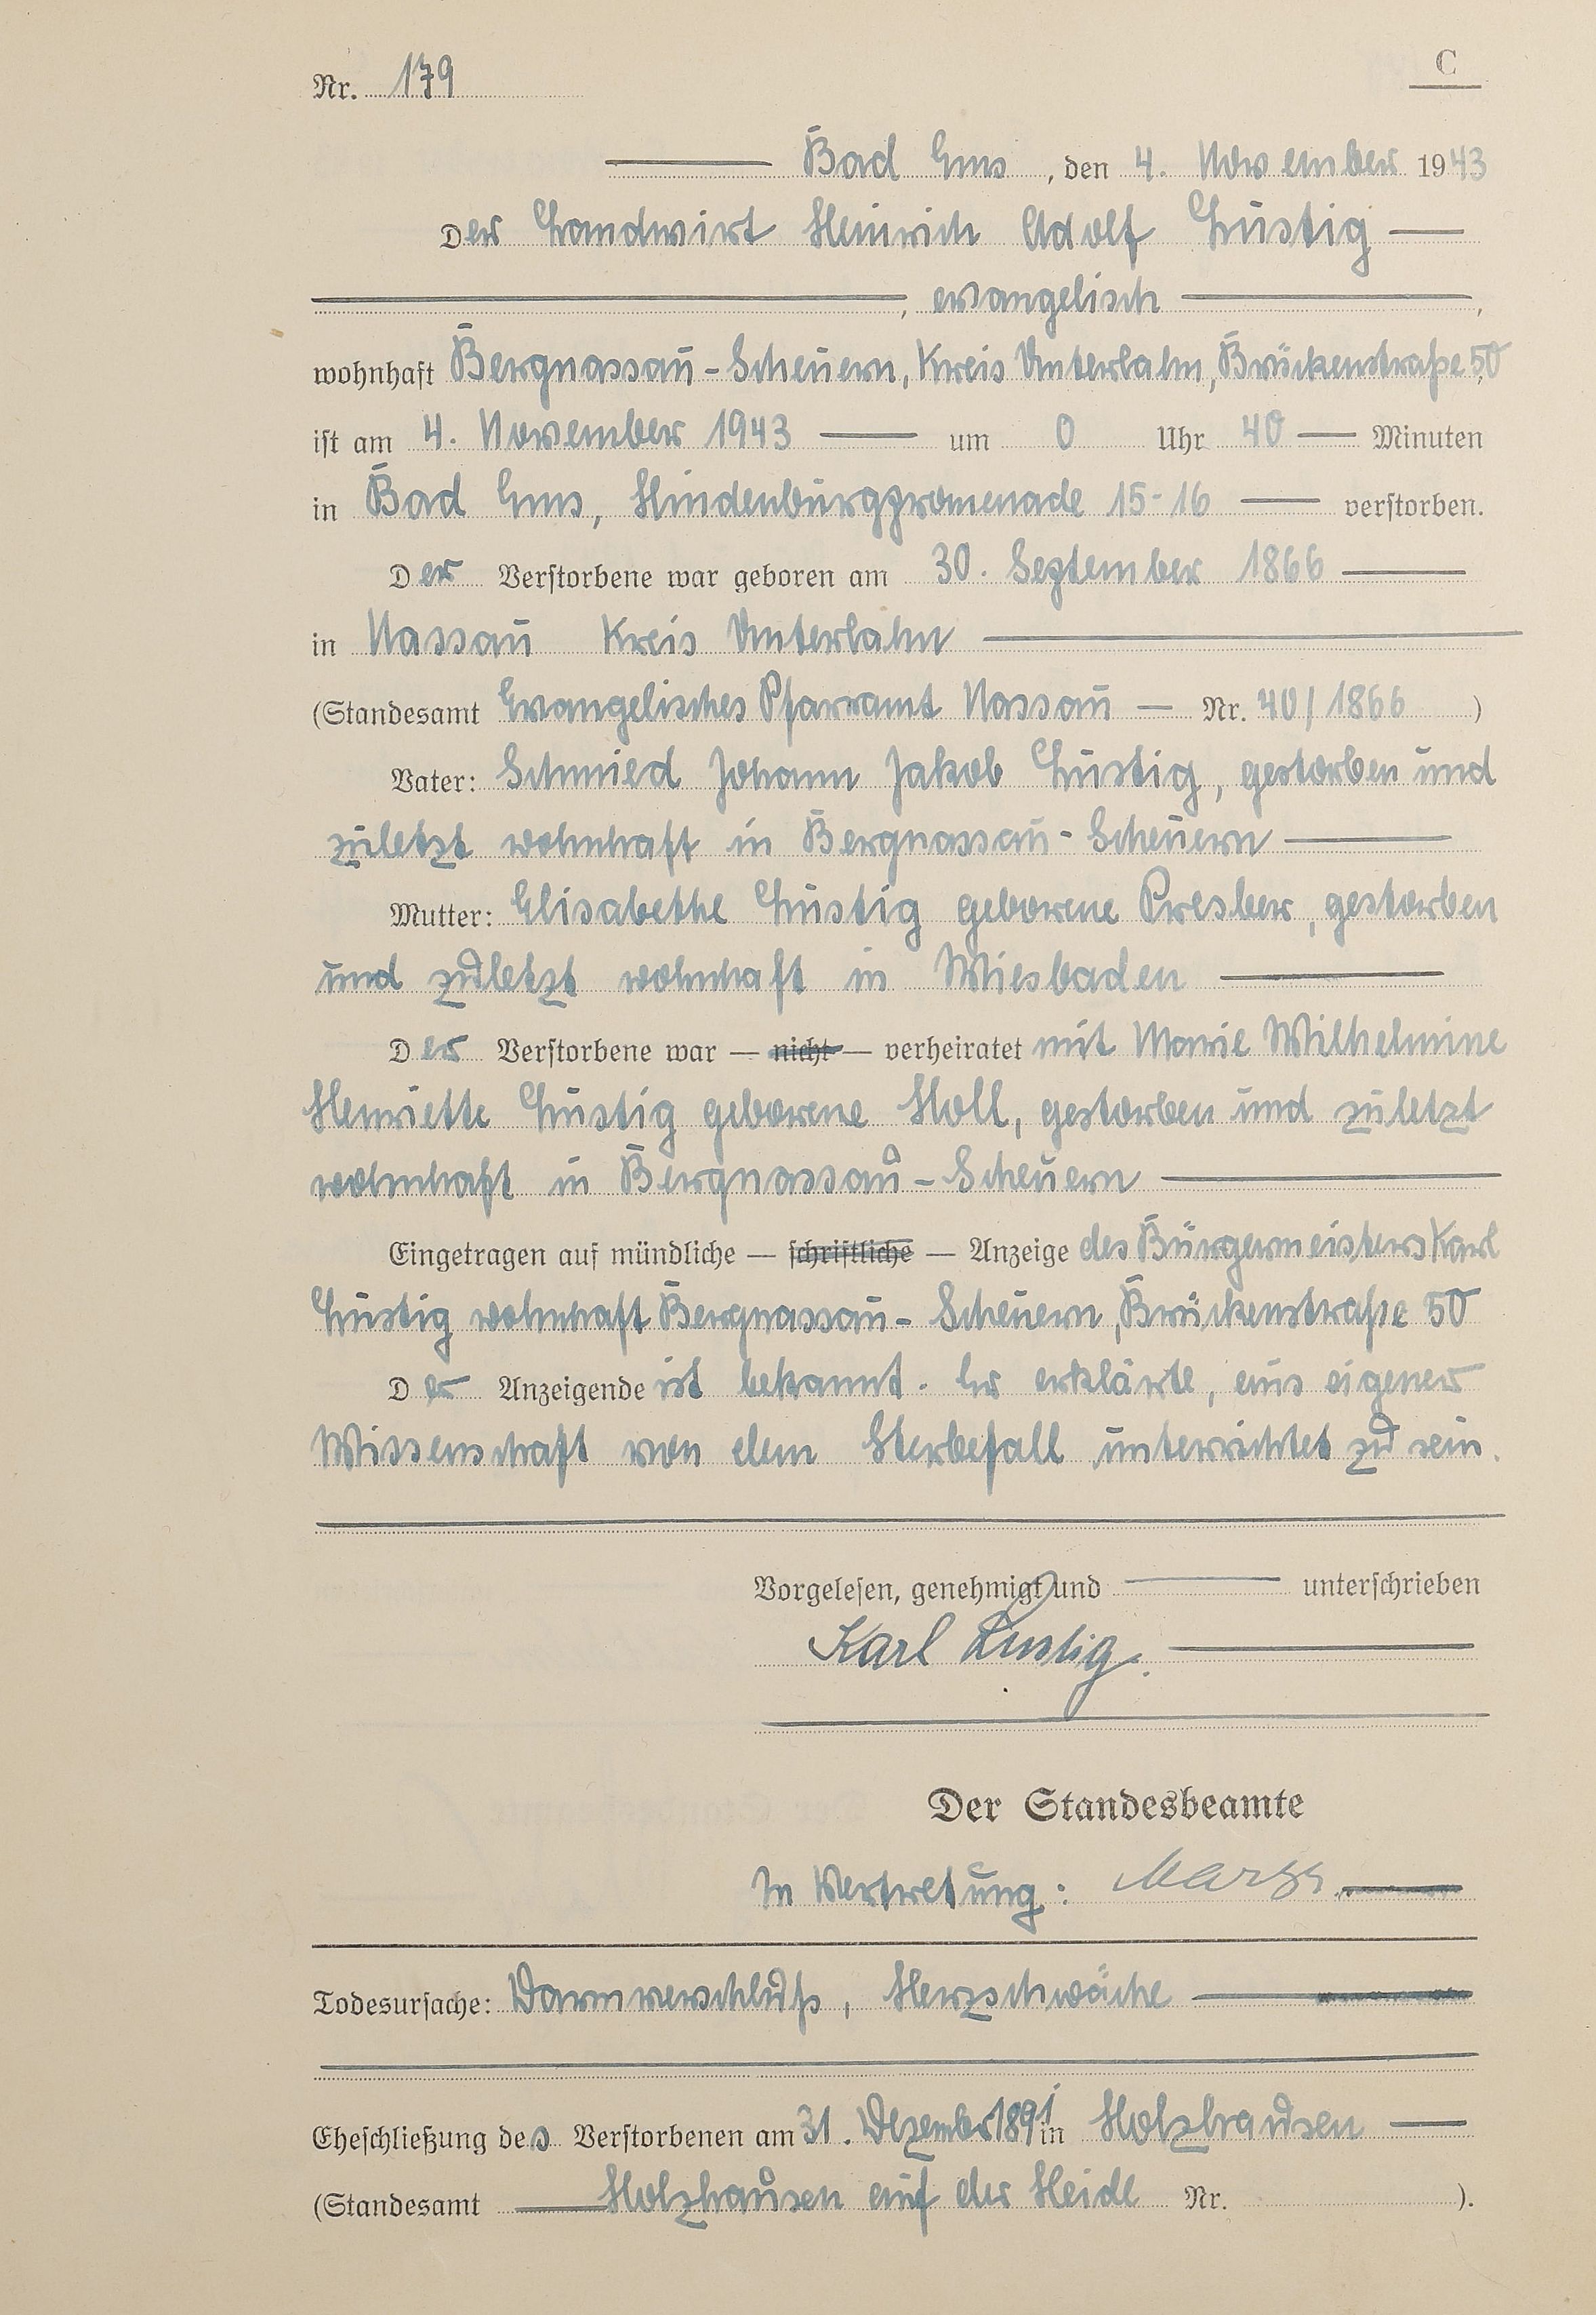 Nr. 179
C
Bad Ems, den 4. November 1943
Der Landwirt Heinrich Adolf Lustig
, evangelisch ,
wohnhaft Bergnassau-Scheuern, Kreis Unterlahn, Brückenstraße 50
ist am 4. November 1943 um 0 Uhr 40 Minuten
in Bad Ems, Hindenburgpromenade 15-16 verstorben.
Der Verstorbene war geboren am 30. September 1866
in Nassau Kreis Unterlahn
(Standesamt Evangelisches Pfarramt Nassau — Nr. 40/1866 )
Vater: Schmied Johann Jakob Lustig, gestorben und
zuletzt wohnhaft in Bergnassau-Scheuern
Mutter: Elisabethe Lustig geborene Presber, gestorben
und zuletzt wohnhaft in Wiesbaden
Der Verstorbene war — nicht — verheiratet mit Marie Wilhelmine
Henriette Lustig geborene Holl, gestorben und zuletzt
wohnhaft in Bergnassau-Scheuern
Eingetragen auf mündliche — schriftliche — Anzeige des Bürgermeisters Karl
Lustig wohnhaft Bergnassau-Scheuern, Brückenstraße 50
Der Anzeigende ist bekannt. Er erklärte, aus eigener
Wissenschaft von dem Sterbefall unterrichtet zu sein.
Vorgelesen, genehmigt und unterschrieben
Karl Lustig.
Der Standesbeamte
In Vertretung:
Todesursache: Darmverschluß, Herzschwäche
Eheschließung des Verstorbenen am 31. Dezember 1891 in Holzhausen
(Standesamt Holzhausen auf der Heide Nr. ).